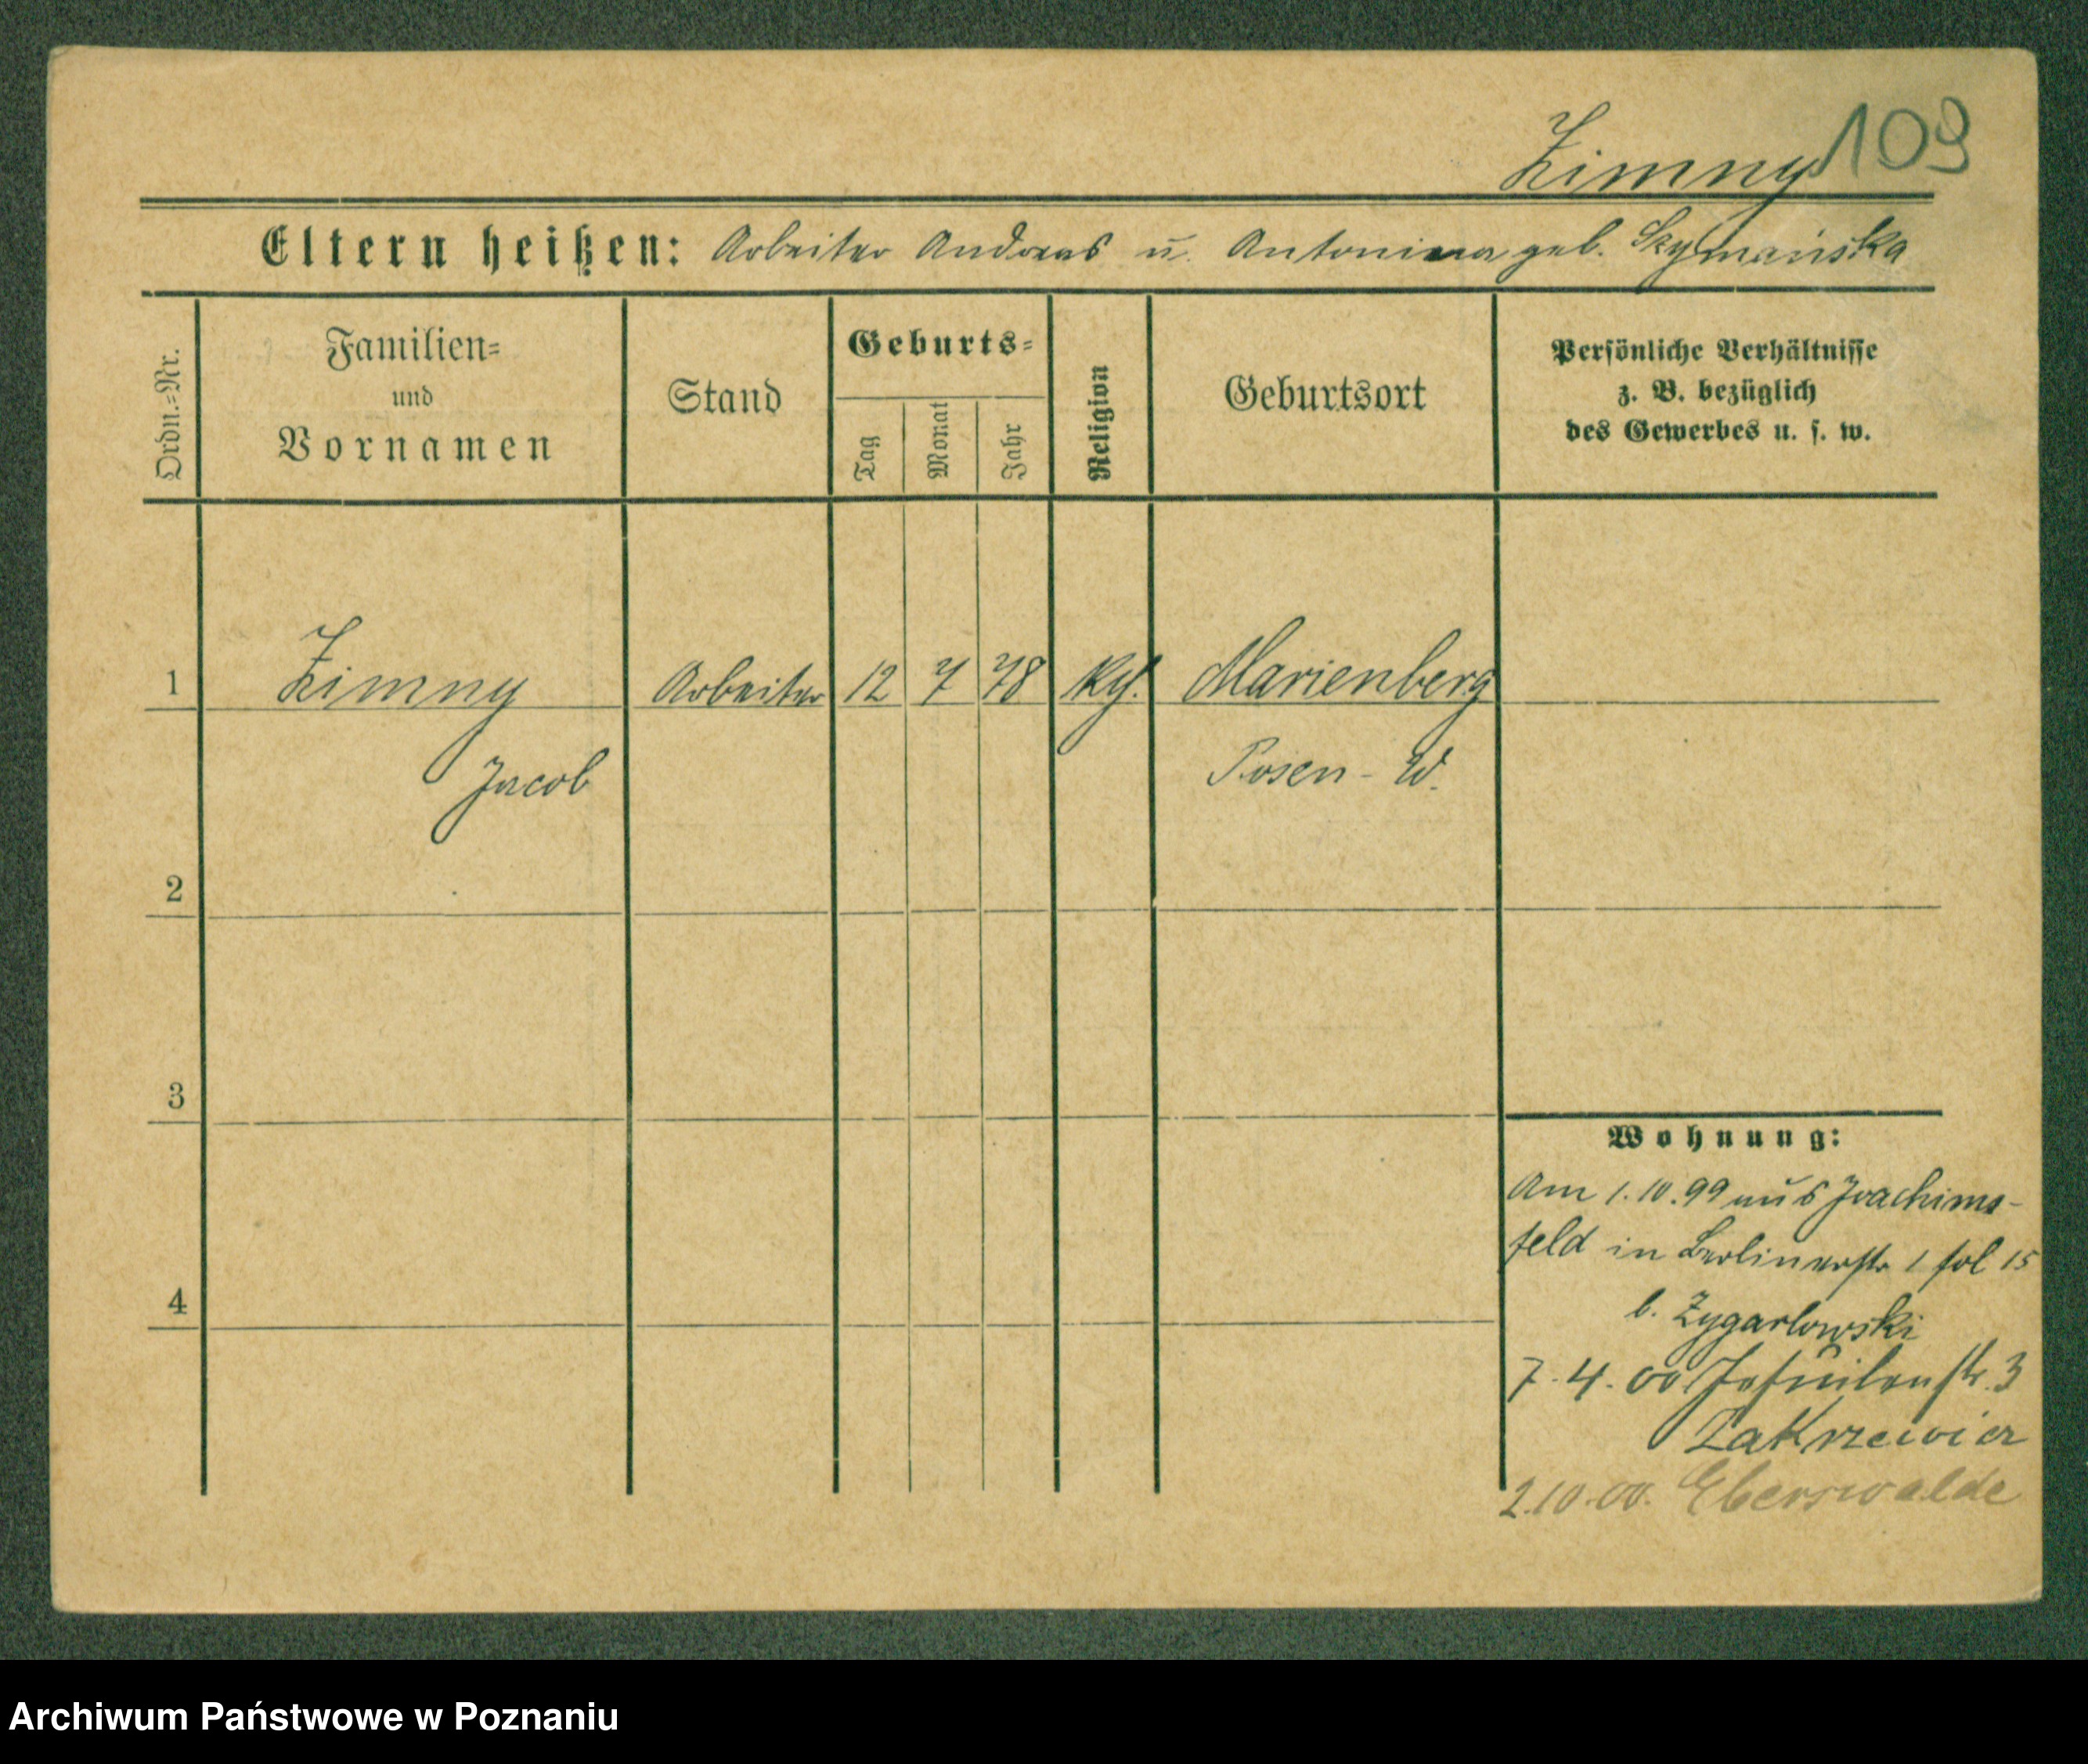 Zimny 109
Eltern heißen: Arbeiter Andreas u. Antonina geb. Skymańska
Ordn.=Nr.
Familien=
und
Vornamen
Stand
Geburts=
Tag
Monat
Jahr
Religion
Geburtsort
Persönliche Verhältnisse
z. B. bezüglich
des Gewerbes u. s. w.
1 Zimny Arbeiter 12 7 78 Marienberg
Jacob Posen - W.
2
3
4
Wohnung:
Am 1.10.99 aus Joachims-
feld in Berlinerstr 1 fol 15
b. Zygarlowski
7.4.00 Jesuitenstr. 3
Zakrzewicz
2.10.00. Eberswalde
Archiwum Państwowe w Poznaniu